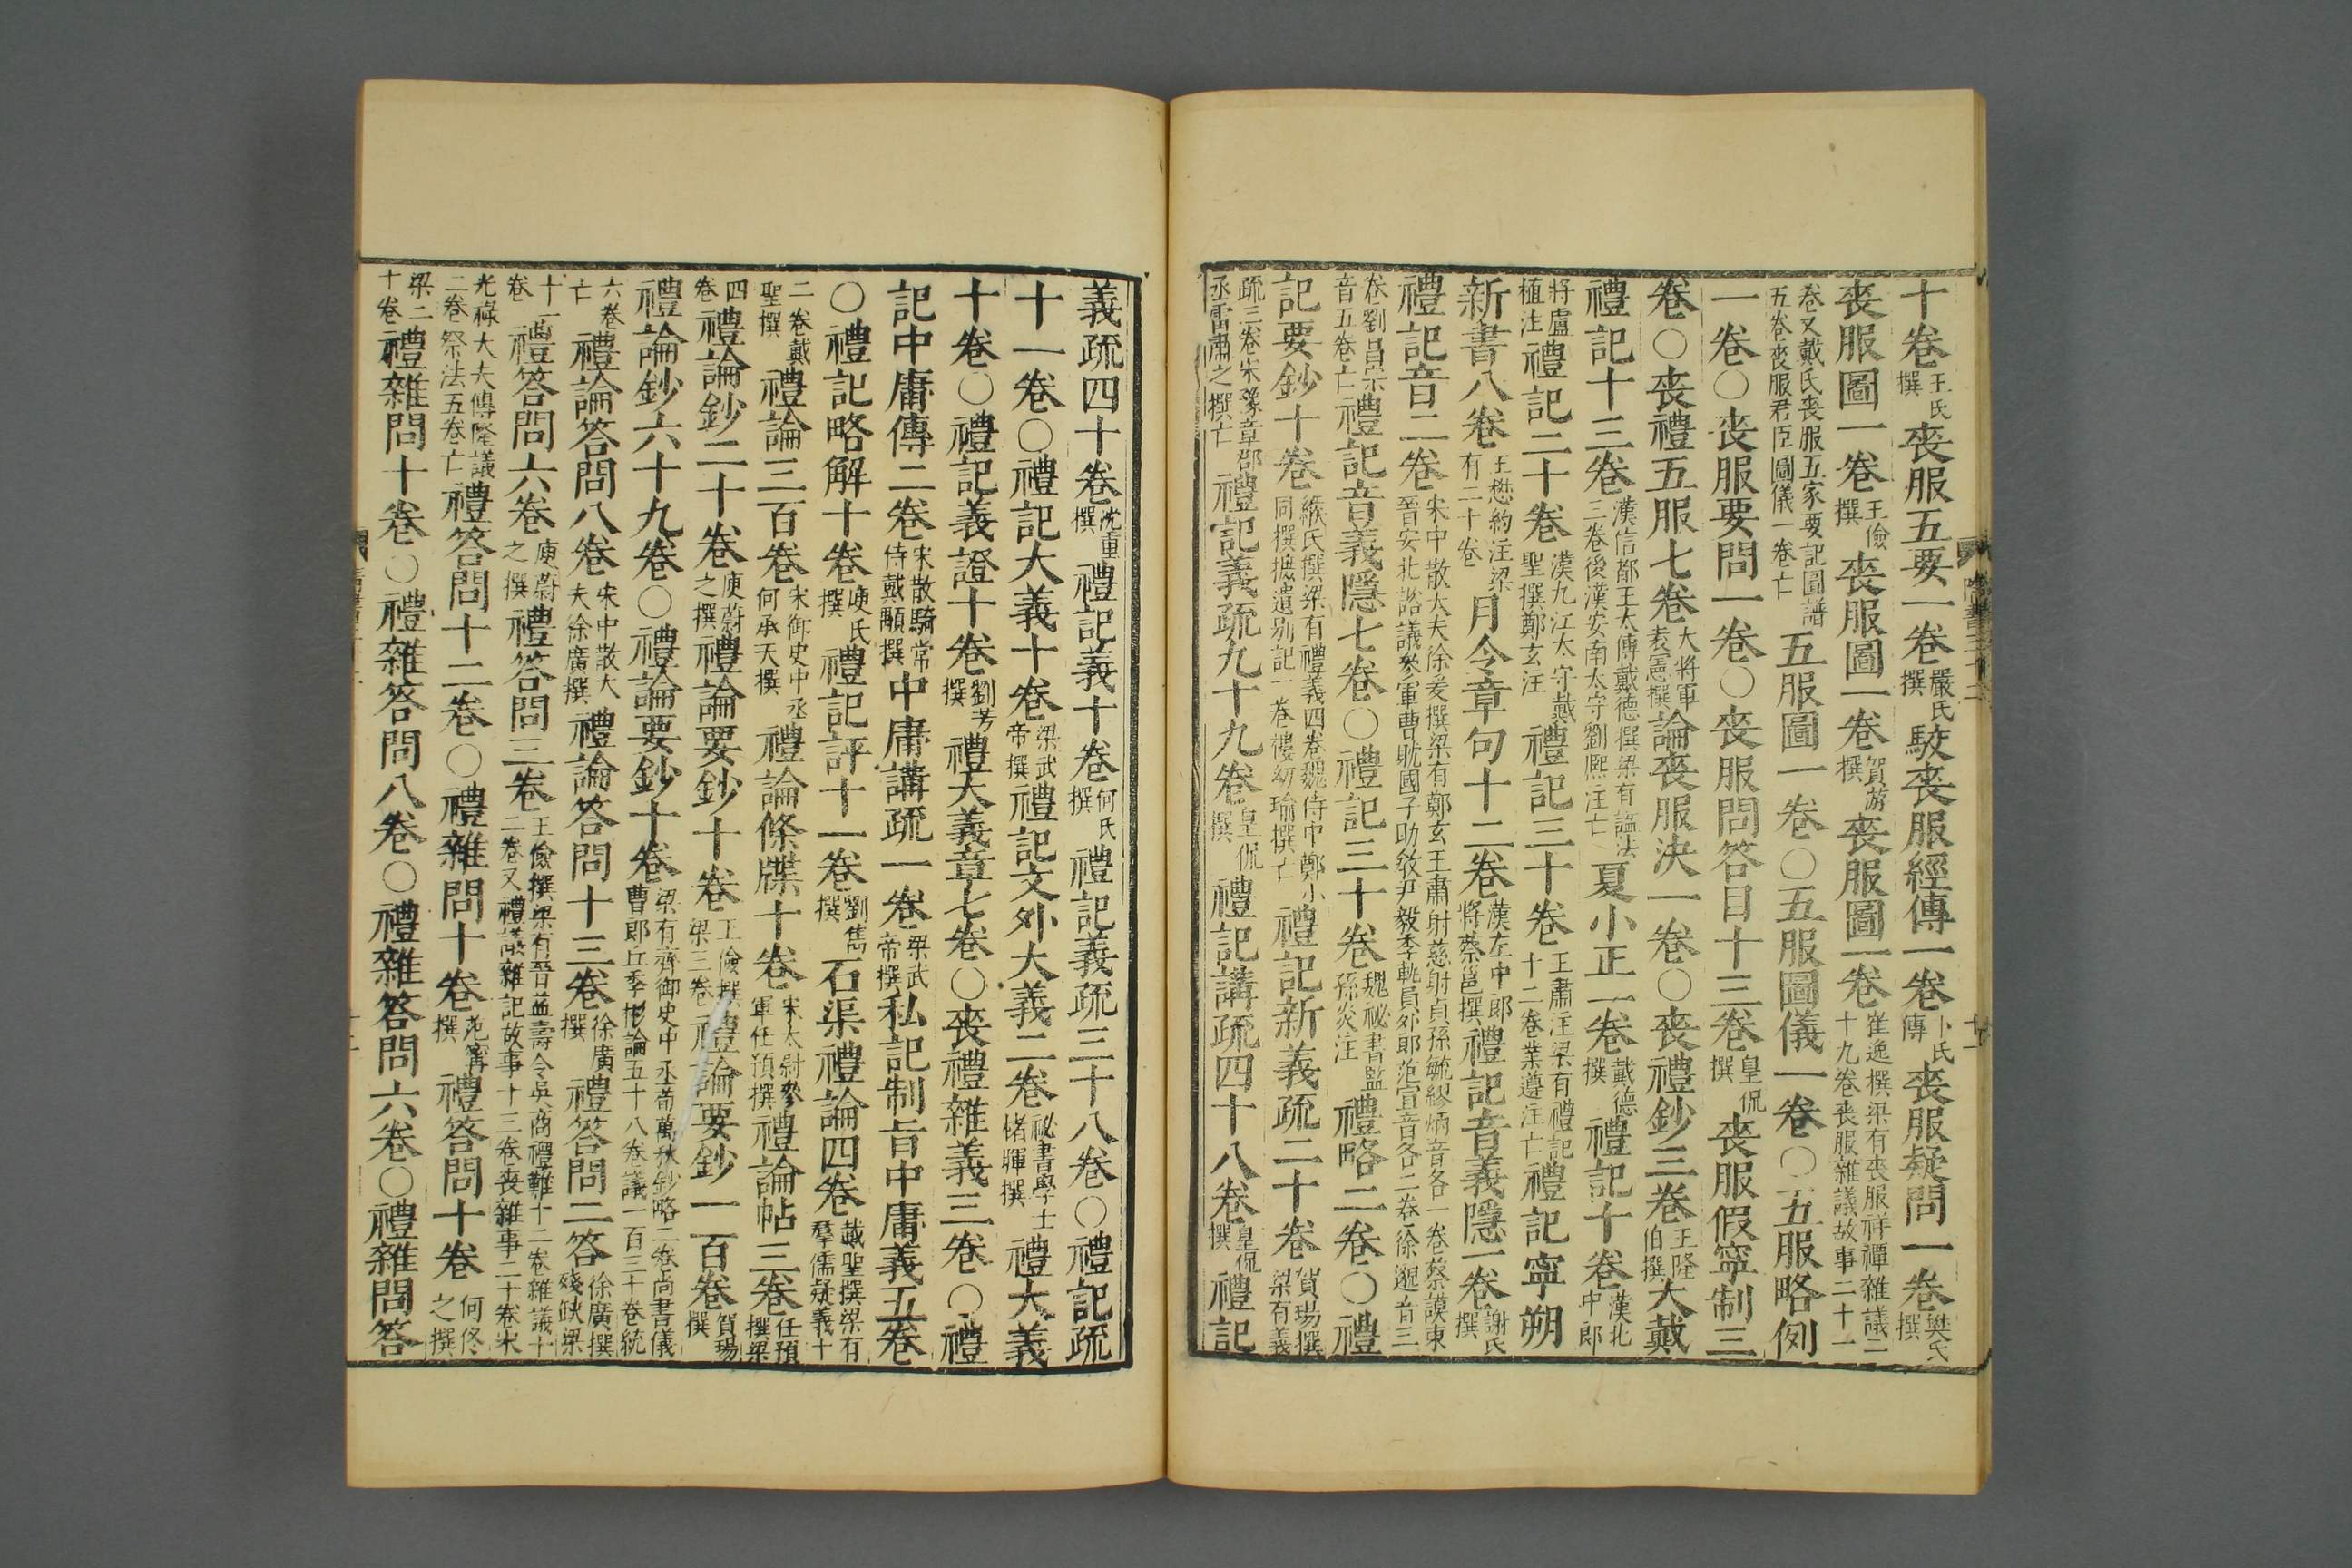 十卷王氏撰喪服五要一卷嚴氏撰駮喪服經傳一卷卜氏傳喪服疑問一卷樊氏撰
喪服圖一卷王儉撰喪服圖一卷賀游撰喪服圖一卷崔逸撰梁有喪服祥禫雜議二十九卷喪服雜議故事二十一
卷又戴氏喪服五家要記圖譜五卷喪服君臣圖儀一卷亡五服圖一卷〇五服圖儀一卷〇五服略例
一卷〇喪服要問一卷〇喪服問答目十三卷皇侃撰喪服假寧制三
卷〇喪禮五服七卷大將軍袁憲撰論喪服決一卷〇喪禮鈔三卷王隆伯撰大戴
禮記十三卷漢信都王太傅戴德撰梁有謚法三卷後漢安南太守劉熙注亡夏小正一卷戴德撰禮記十卷漢北中郎
將盧植注禮記二十卷漢九江太守戴聖撰鄭玄注禮記三十卷王肅注梁有禮記十二卷業遵注亡禮記寧朔
新書八卷王懋約注梁有二十卷月令章句十二卷漢左中郎將蔡邕撰禮記音義隱一卷謝氏撰
禮記音二卷宋中散大夫徐爰撰梁有鄭玄王肅射慈射貞孫毓繆炳音各一卷蔡謨東晉安北諮議參軍曹躭國子助敎尹毅李軌員外郎范宣音各二卷徐邈音三
卷劉昌宗音五卷亡禮記音義隱七卷〇禮記三十卷魏祕書監孫炎注禮略二卷〇禮
記要鈔十卷緱氏撰梁有禮義四卷魏侍中鄭小同撰摭遺別記一卷樓幼瑜撰亡禮記新義疏二十卷賀瑒撰梁有義
疏三卷宋豫章郡丞雷肅之撰亡禮記義疏九十九卷皇侃撰禮記講疏四十八卷皇侃撰禮記
義疏四十卷沈重撰禮記義十卷何氏撰禮記義疏三十八卷〇禮記疏
十一卷〇禮記大義十卷梁武帝撰禮記文外大義二卷祕書學士禇暉撰禮大義
十卷〇禮記義證十卷劉芳撰禮大義章七卷〇喪禮雜義三卷〇禮
記中庸傳二卷宋散騎常侍戴顒撰中庸講疏一卷梁武帝撰私記制旨中庸義五卷
〇禮記略解十卷庾氏撰禮記評十一卷劉雋撰石渠禮論四卷戴聖撰梁有羣儒疑義十
二卷戴聖撰禮論三百卷宋御史中丞何承天撰禮論條牒十卷宋太尉參軍任預撰禮論帖三卷任預撰梁
四卷禮論鈔二十卷庾蔚之撰禮論要鈔十卷王儉撰梁三卷禮論要鈔一百卷賀瑒撰
禮論鈔六十九卷〇禮論要鈔十卷梁有齊御史中丞荀萬秋鈔略二卷尚書儀曹郎丘季彬論五十八卷議一百三十卷統
六卷亡禮論答問八卷宋中散大夫徐廣撰禮論答問十三卷徐廣撰禮答問二答徐廣撰殘缺梁
十一卷禮答問六卷庾蔚之撰禮答問三卷王儉撰梁有晉益壽令吳商禮難十二卷雜議十二卷又禮議雜記故事十三卷喪雜事二十卷宋
光祿大夫傅隆議二卷祭法五卷亡禮答問十二卷〇禮雜問十卷范甯撰禮答問十卷何佟之撰
梁二十卷禮雜問十卷〇禮雜答問八卷〇禮雜答問六卷〇禮雜問答